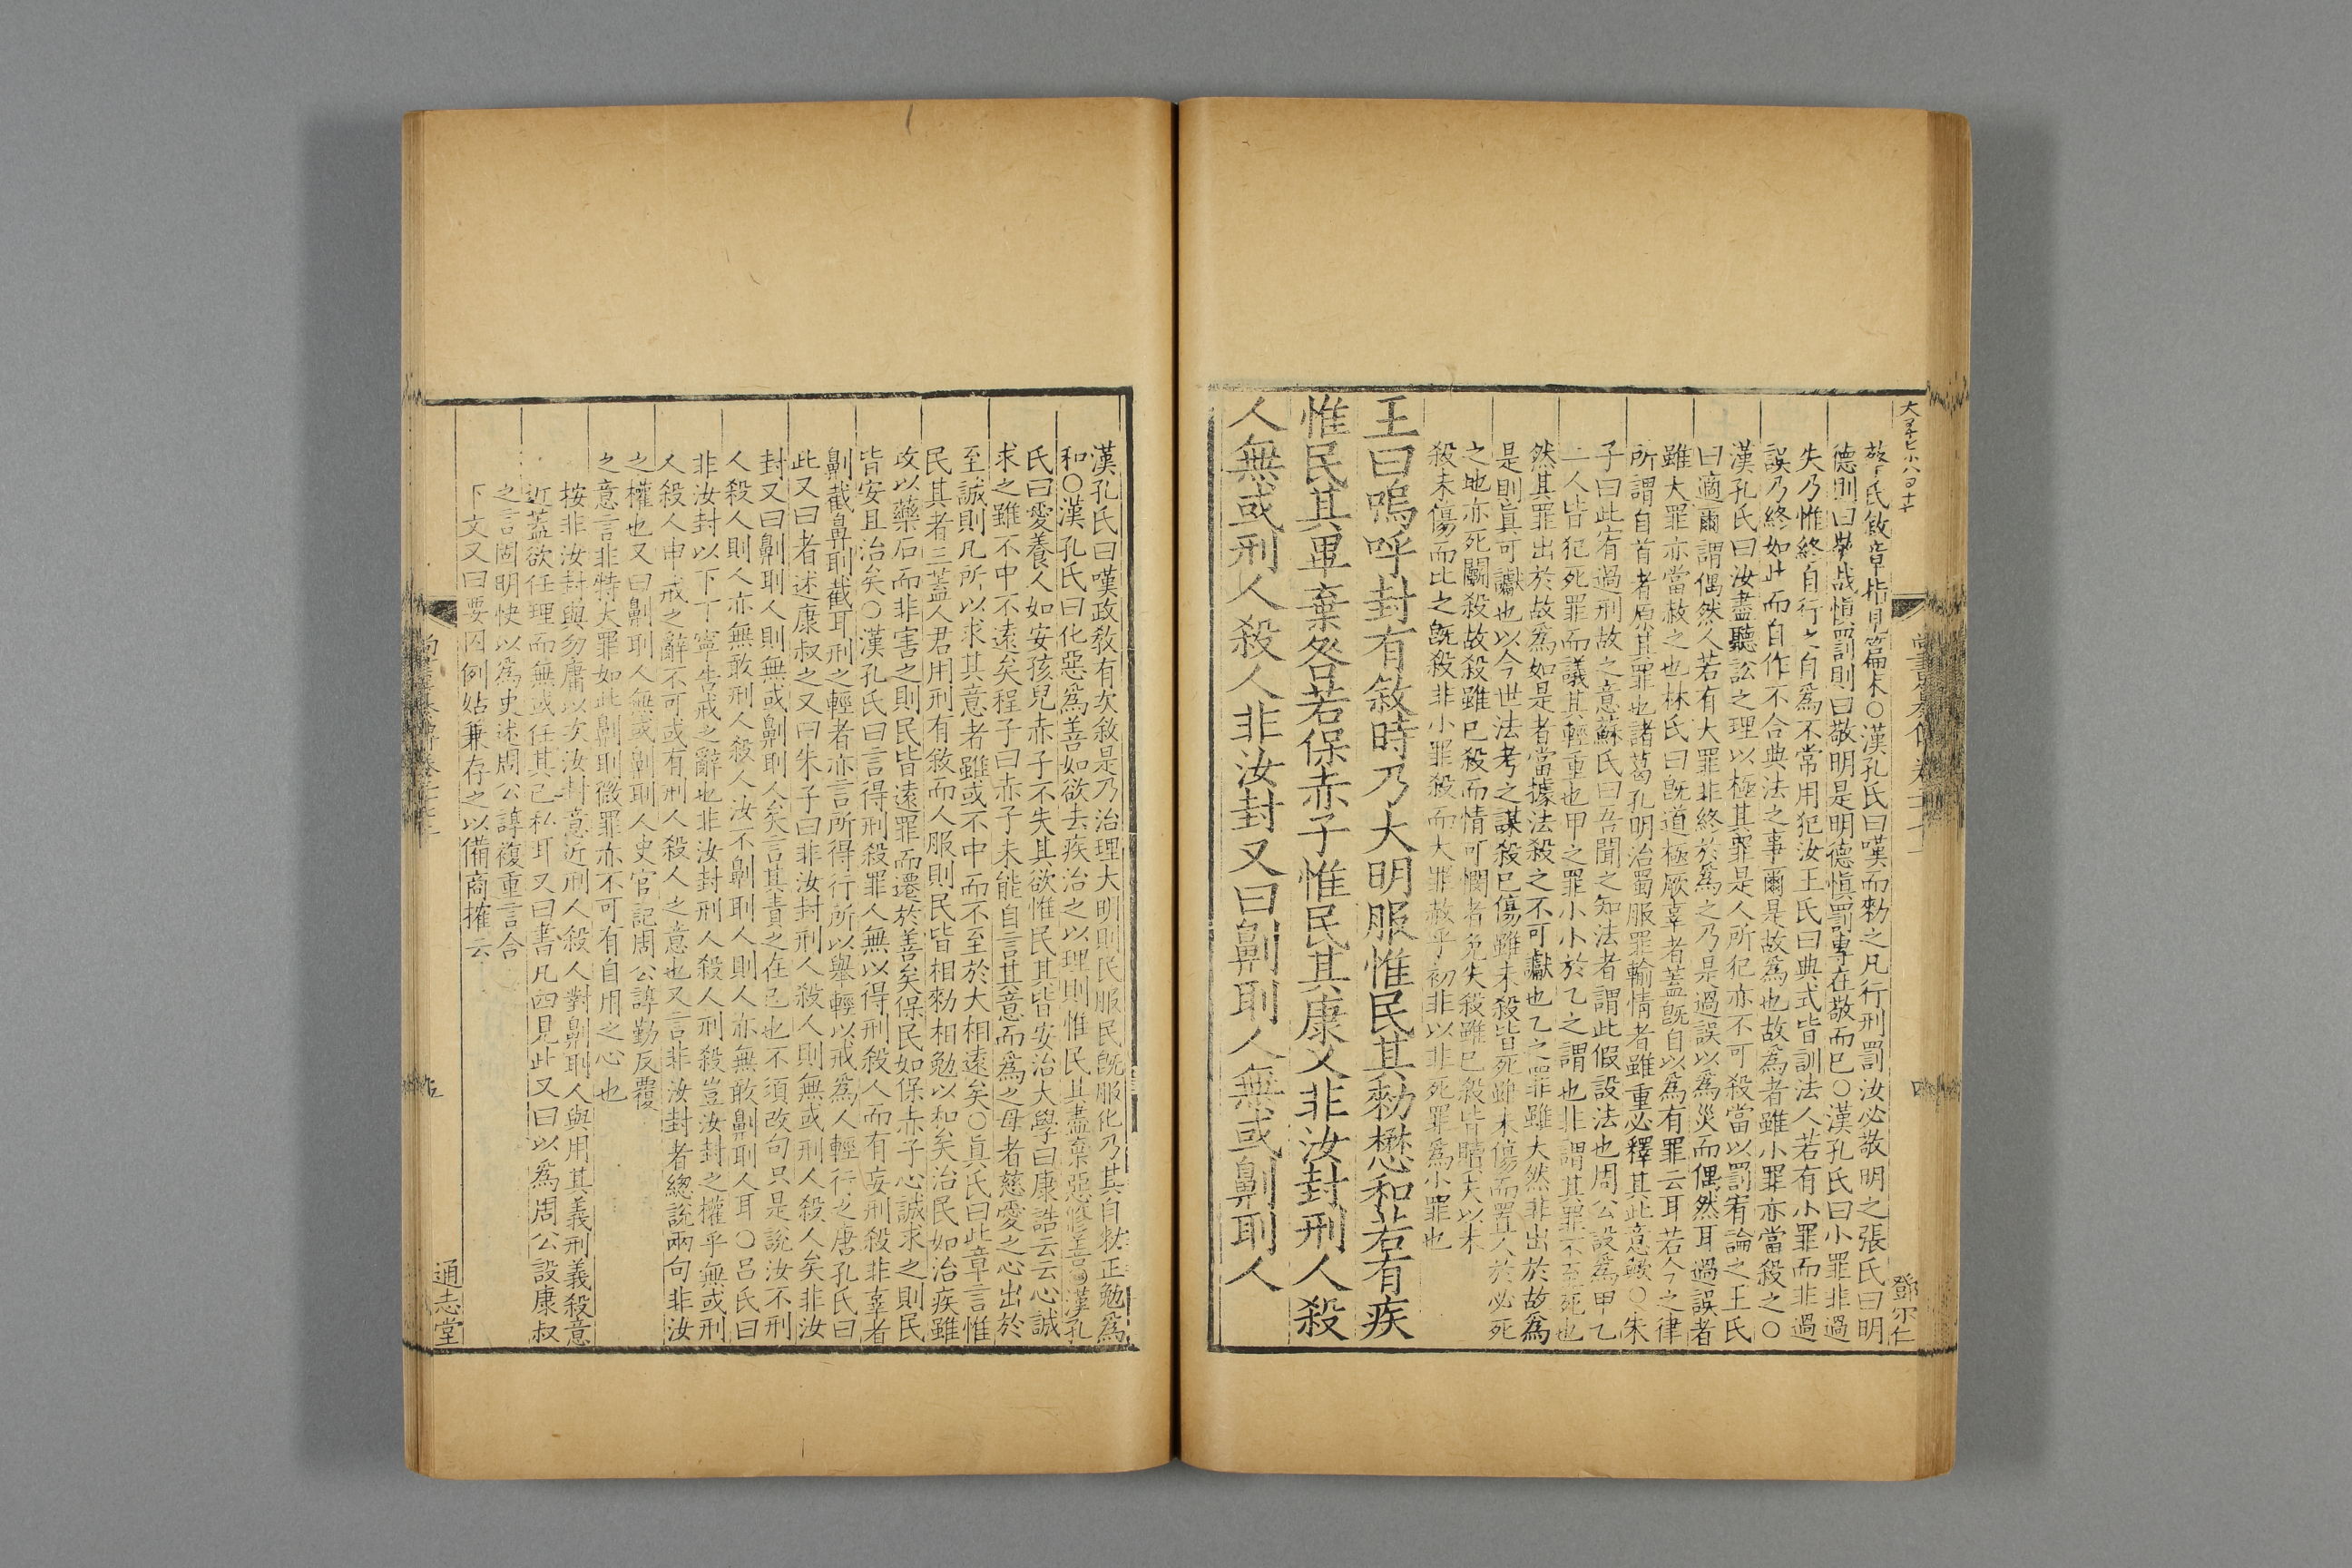 敬下氏敘章指見篇末○漢孔氏曰嘆而勑之凡行刑罰汝必敬明之張氏曰明
德則曰敬哉慎罰則曰敬明是明德慎罰專在敬而已○漢孔氏曰小罪非過
失乃惟終自行之自爲不常用犯汝王氏曰典式皆訓法人若有小罪而非過
誤乃終如此而自作不合典法之事爾是故爲也故爲者雖小罪亦當殺之○
漢孔氏曰汝盡聽訟之理以極其罪是人所犯亦不可殺當以罰宥論之王氏
曰適爾謂偶然人若有大罪非終於爲之乃是過誤以爲災而偶然耳過誤者
雖大罪亦當赦之也林氏曰旣道極厥辜者蓋旣自以爲有罪云耳若今之律
所謂自首者原其罪也諸葛孔明治蜀服罪輸情者雖重必釋其此意歟○朱
子曰此宥過刑故之意蘇氏曰吾聞之知法者謂此假設法也周公設爲甲乙
二人皆犯死罪而議其輕重也甲之罪小小於乙之謂也非謂其罪不至死也
然其罪出於故爲如是者當據法殺之不可讞也乙之罪雖大然非出於故爲
是則眞可讞也以今世法考之謀殺已傷雖未殺皆死雖未傷而置人於必死
之地亦死鬬殺故殺雖已殺而情可憫者免失殺雖已殺皆贖夫以未
殺未傷而比之旣殺非小罪殺而大罪赦乎初非以非死罪爲小罪也
王曰嗚呼封有敘時乃大明服惟民其勑懋和若有疾
惟民其畢棄咎若保赤子惟民其康乂非汝封刑人殺
人無或刑人殺人非汝封又曰劓刵人無或劓刵人
鄧尔仁
漢孔氏曰嘆政敎有次敘是乃治理大明則民服民旣服化乃其自勑正勉爲
和○漢孔氏曰化惡爲善如欲去疾治之以理則惟民其盡棄惡修善○漢孔
氏曰愛養人如安孩兒赤子不失其欲惟民其皆安治大學曰康誥云云心誠
求之雖不中不遠矣程子曰赤子未能自言其意而爲之母者慈愛之心出於
至誠則凡所以求其意者雖或不中而不至於大相遠矣○眞氏曰此章言惟
民其者三蓋人君用刑有敘而人服則民皆相勑相勉以和矣治民如治疾雖
攻以藥石而非害之則民皆遠罪而遷於善矣保民如保赤子心誠求之則民
皆安且治矣○漢孔氏曰言得刑殺罪人無以得刑殺人而有妄刑殺非辜者
劓截鼻刵截耳刑之輕者亦言所得行所以舉輕以戒爲人輕行之唐孔氏曰
此又曰者述康叔之又曰朱子曰非汝封刑人殺人則無或刑人殺人矣非汝
封又曰劓刵人則無或劓刵人矣言其責之在己也不須改句只是說汝不刑
人殺人則人亦無敢刑人殺人汝不劓刵人則人亦無敢劓刵人耳○呂氏曰
非汝封以下丁寧告戒之辭也非汝封刑人殺人刑殺豈汝封之權乎無或刑
人殺人申戒之辭不可或有刑人殺人之意也又言非汝封者總說兩句非汝
之權也又曰劓刵人無或劓刵人史官記周公諄勤反覆
之意言非特大罪如此劓刵微罪亦不可有自用之心也
按非汝封與勿庸以次汝封意近刑人殺人對劓刵人與用其義刑義殺意
近蓋欲任理而無或任其己私耳又曰書凡四見此又曰以爲周公設康叔
之言固明快以爲史述周公諄複重言合
下文又曰要囚例姑兼存之以備商搉云
通志堂